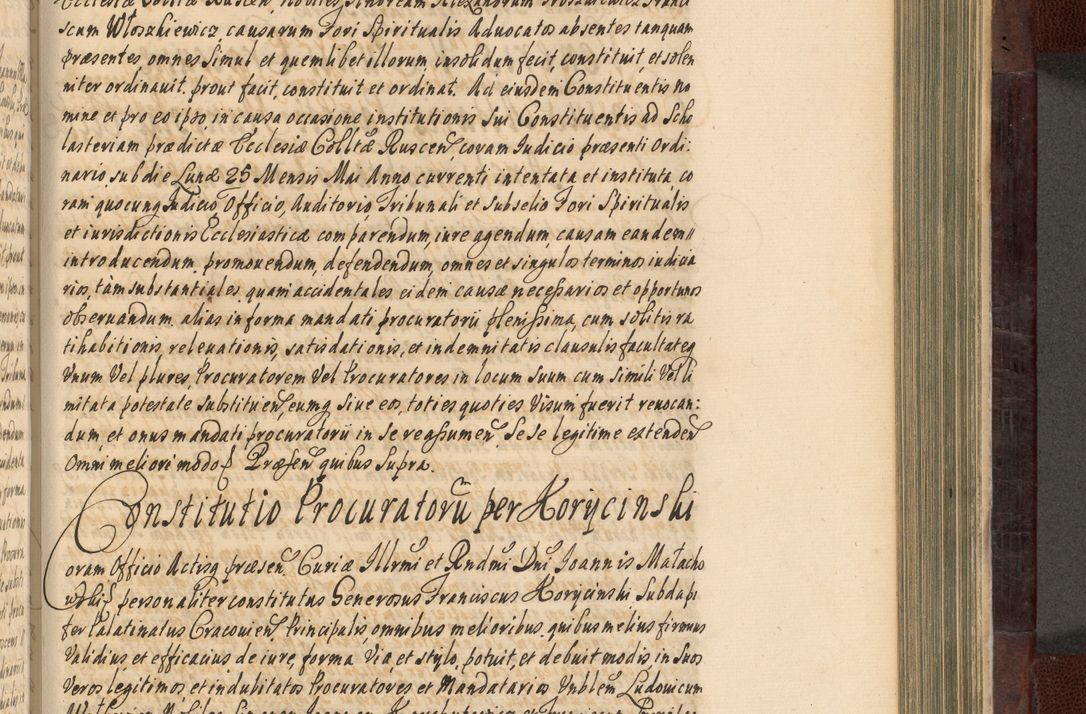 scum Włoszkiewicz, causarum Fori Spiritualis Advocatos absentes tanquam
præsentes, omnes simul et quemlibet illorum insolidum fecit, constituit, et solen
niter ordinauit, prout facit, constituit et ordinat. Ad eiusdem Constituentis no
mine et pro eo ipso, in causa occasione institutionis sui Constituentis ad Scho
lasteriam prædictæ Ecclesiæ Colltæ Ruscen, coram Judicio præsenti Ordi:
nario, sub die Lunæ 25 Mensis Mai Anno currenti intentata et instituta, co
ram quocunq Judicio Officio, Auditorio Tribunali et Subselio Fori Spiritualis
et iurisdictionis Ecclesiasticæ comparendum, iure agendum, causam eandem
introducendum, promouendum, defendendum, omnes et singulos terminos iudicia
rios, tàm substantiales, quam accidentales eidem causæ necessarios et opportunos
obseruandum. alias in forma mandati procuratorii plenissima, cum solitis ra
tihabitionis, releuationis, satisdationis, et indemnitatis clausulis facultateq
Vnum Vel plures, Procuratorem Vel Procuratores in locum suum cum simili Vel li
mitata potestate substituen, eumq siue eos, toties quoties Visum fuerit reuocan:
dum, et onus mandati procuratorii in se reassumen, Sese legitime extenden
Omni meliori modo Præsen quibus supra.
Constitutio Procuratorũ per Korÿcinski
Coram Officio Actisq præsen. Curiæ Jllrmi et Rndmi Dni Joannis Małacho
wski personaliter constitutus Generosus Franciscus Korÿcinski Subdapi
fer Palatinatus Cracouien, Principalis, omnibus melioribus, quibus melius firmius
Validius et efficacius de iure, forma Via et stylo, potuit, et debuit modis, in suos
Veros legitimos et indubitatos Procuratores et Mandatarios Vnblem Ludouicum